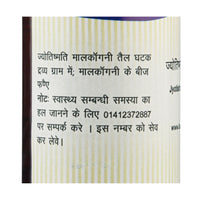 ज्योतिष्मति मालकाँगनी तैल घटक
द्रव्य ग्राम में; मालकाँगनी के बीज
फण्ए
नोटः स्वास्थ्य सम्बन्धी समस्या का
हल जानने के लिए 01412372887
पर सम्पर्क करे । इस नम्बर को सेव
कर लेवे।
ज्योतिष्म